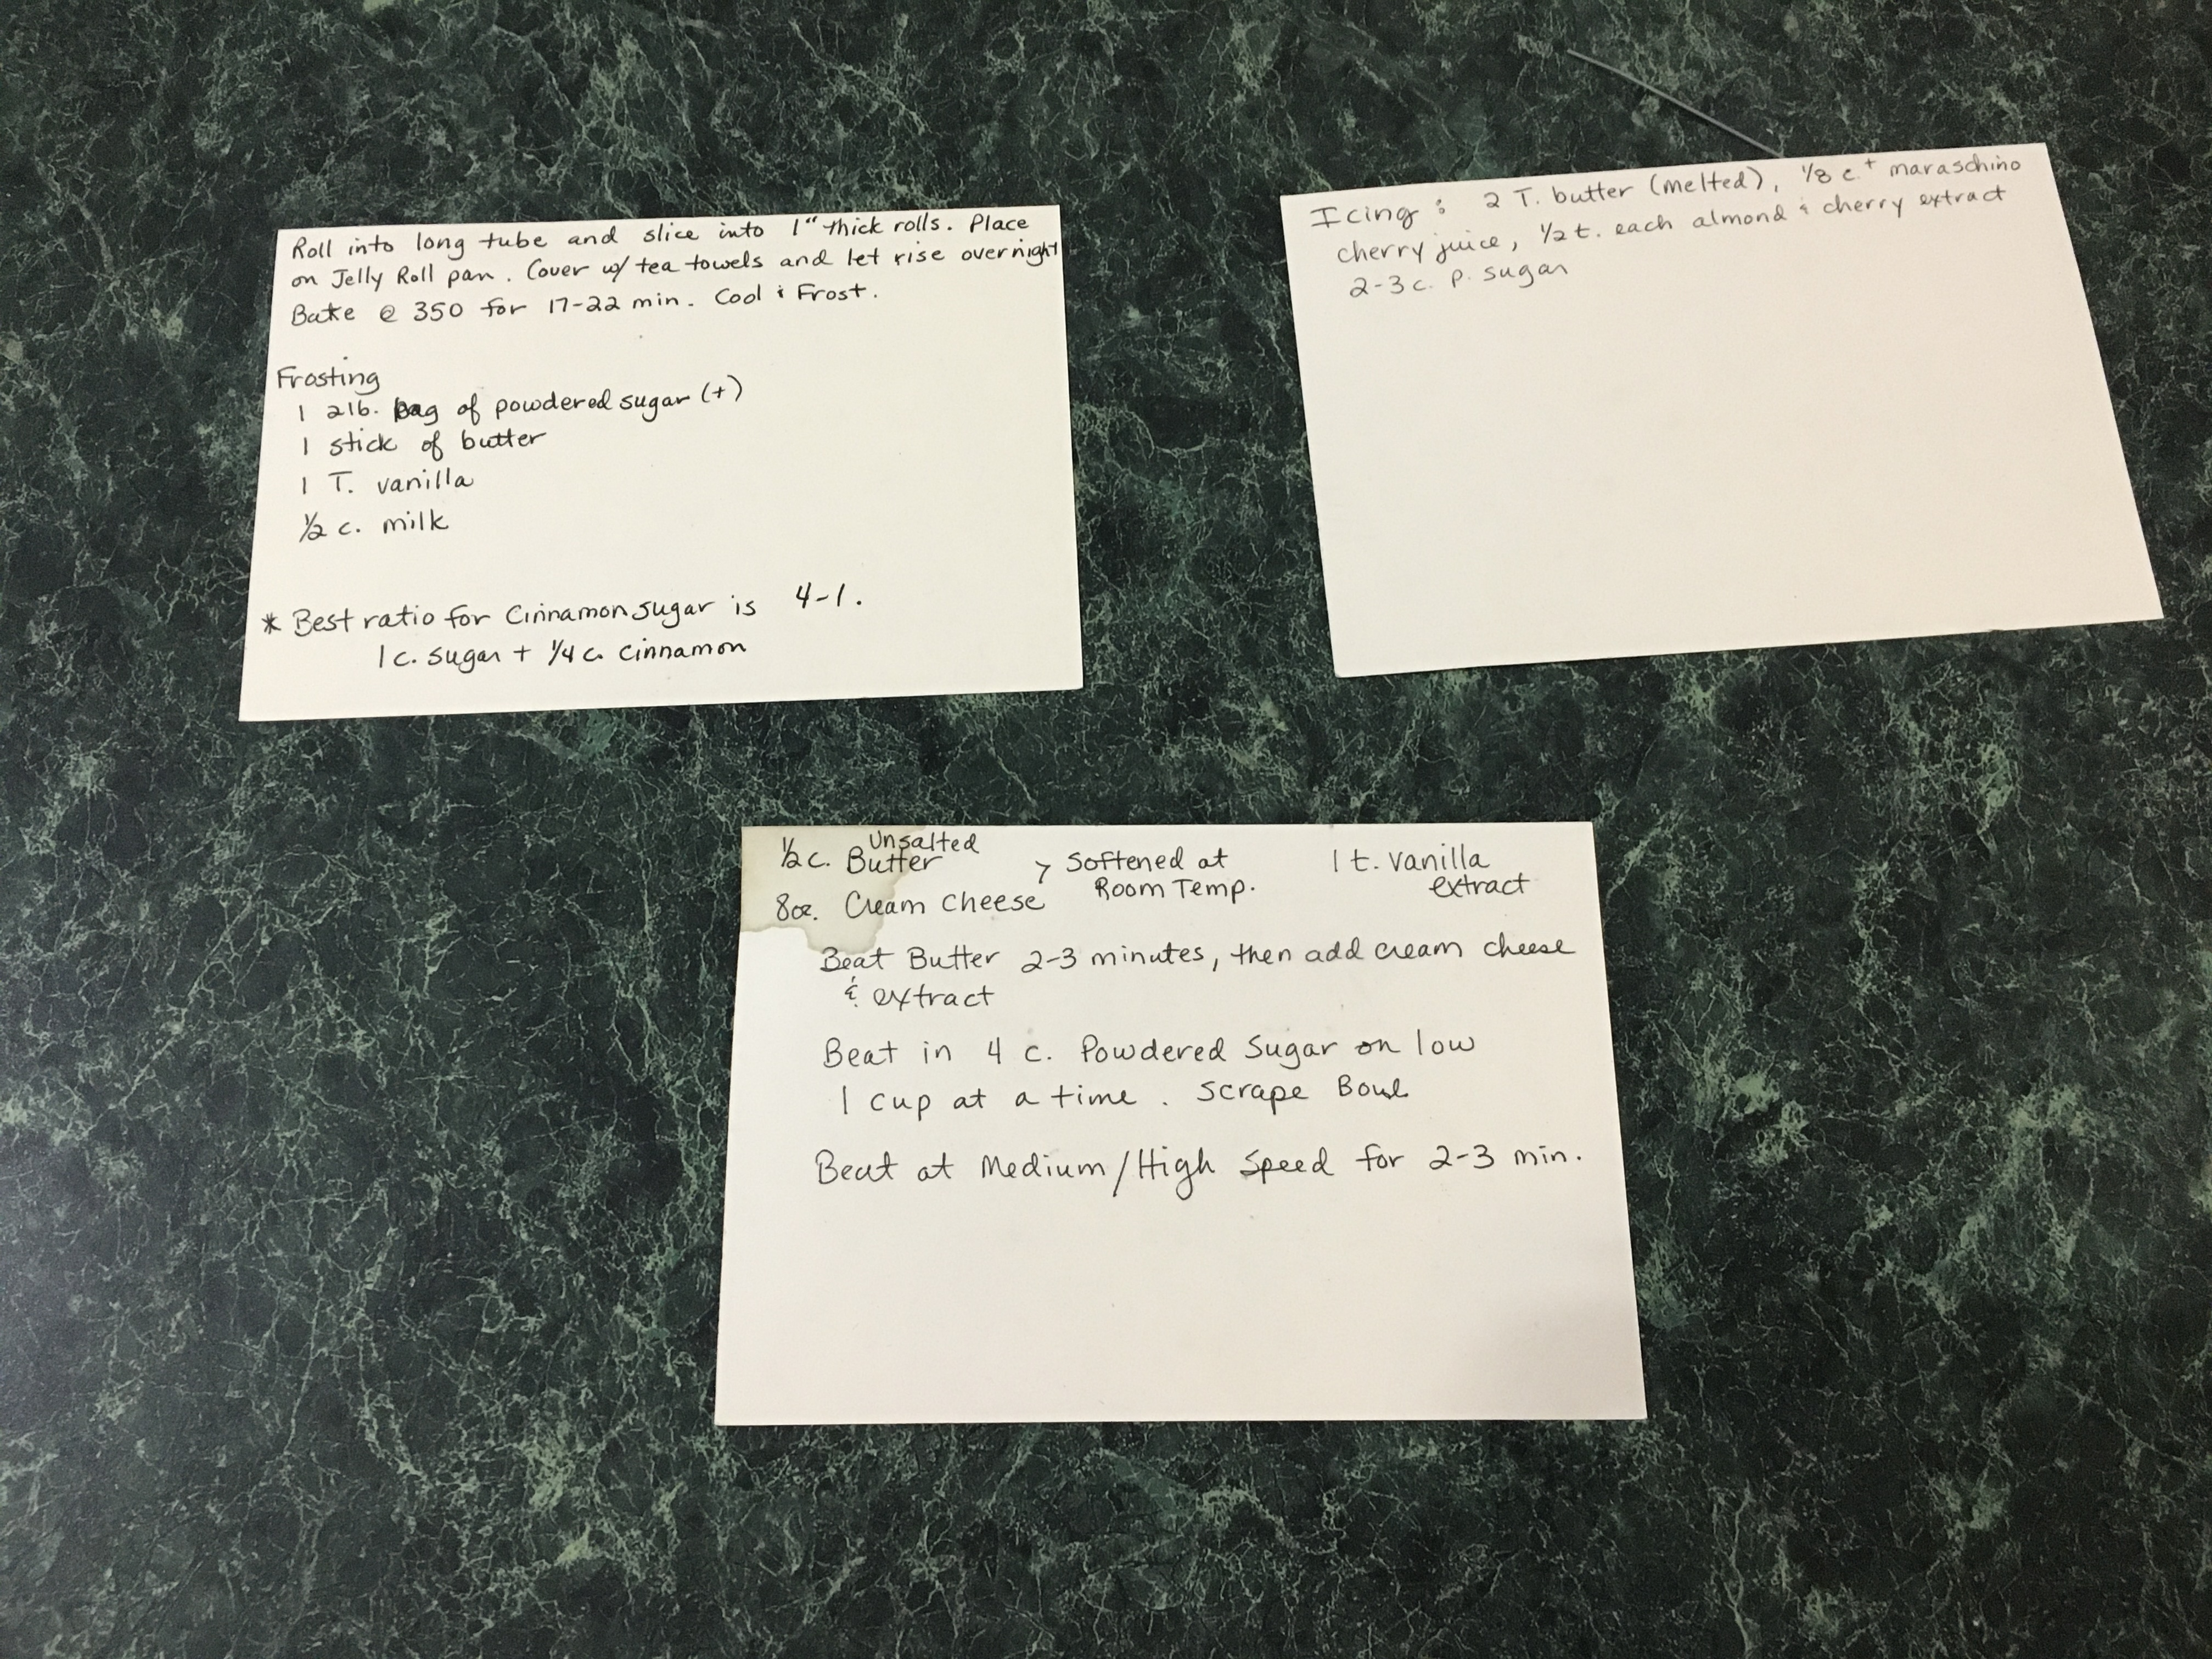 Roll into long tube and slice into 1" thick rolls. Place
on Jelly Roll pan. Cover w/ tea towels and let rise overnight
Bake @ 350 for 17-22 min. Cool & Frost.
Frosting
1 2lb. bag of powdered sugar (+)
1 stick of butter
1 T. vanilla
1/2 c. milk
* Best ratio for Cinnamon sugar is 4-1.
1 c. sugar + 1/4 c. cinnamon
Icing: 2 T. butter (melted), 1/8 c.+ maraschino
cherry juice, 1/2 t. each almond & cherry extract
2-3 c. p. sugar
1/2 c. Unsalted Butter
8oz. Cream Cheese
> Softened at
Room Temp.
1 t. vanilla
extract
Beat Butter 2-3 minutes, then add cream cheese
& extract
Beat in 4 c. Powdered Sugar on low
1 cup at a time. Scrape Bowl
Beat at Medium/High Speed for 2-3 min.